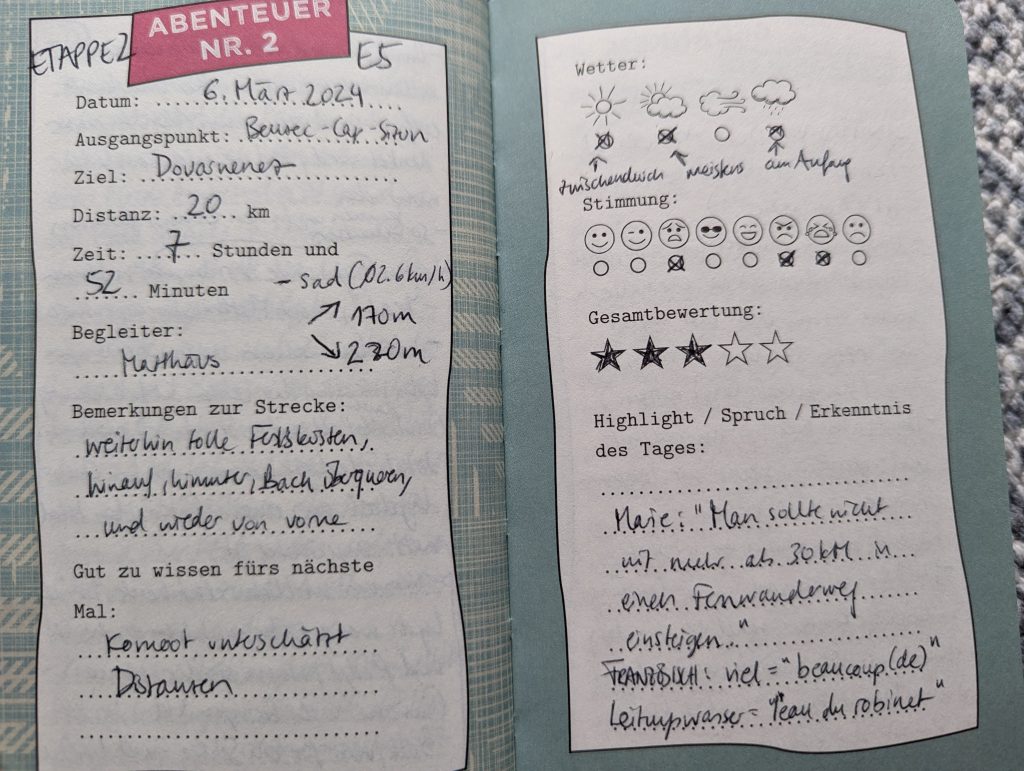 ETAPPE 2
ABENTEUER
NR. 2
E5
Datum: 6. März 2024
Ausgangspunkt: Beuzec-Cap-Sizun
Ziel: Douarnenez
Distanz: 20 km
Zeit: 7 Stunden und
52 Minuten - sad (∅2.6km/h)
↗ 170m
Begleiter:
↘ 220m
Matthäus
Bemerkungen zur Strecke:
weiterhin tolle Felsküsten,
hinauf, hinunter, Bach überqueren,
und wieder von vorne
Gut zu wissen fürs nächste
Mal:
Komoot unterschätzt
Distanzen
Wetter:
zwischendurch meistens am Anfang
Stimmung:
Gesamtbewertung:
Highlight / Spruch / Erkenntnis
des Tages:
"Man sollte nicht
mit mehr als 30km in
einen Fernwanderweg
einsteigen..."
FRANZÖSISCH: viel = "beaucoup (de)"
Leitungswasser = "l'eau du robinet"